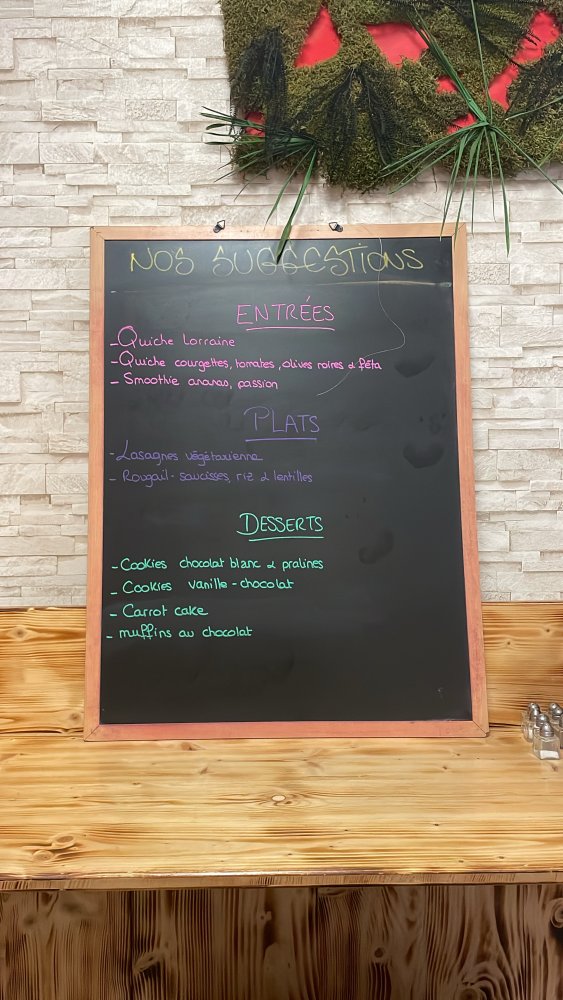 NOS SUGGESTIONS
ENTRÉES
- Quiche Lorraine
- Quiche courgettes, tomates, olives noires & féta
- Smoothie ananas, passion
PLATS
- Lasagnes végétarienne
- Rougail-saucisses, riz & lentilles
DESSERTS
- Cookies chocolat blanc & pralines
- Cookies vanille-chocolat
- Carrot cake
- muffins au chocolat